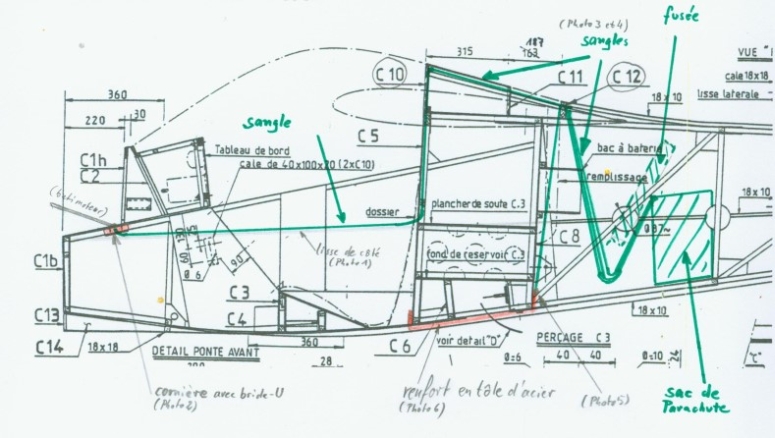 fusée
(Photo 3 et 4)
sangles
187
315
163
VUE "
C 10
C 11
C 12
cale 18x18
lisse laterale
18 x 10
360
220
30
sangle
C 5
C1h
C2
Tableau de bord
cale de 40x100x20 (2xC10)
bac à batterie
remplissage
plancher de soute C.3
18 x 10
dossier
60
Ø 6
90
lisse de côté
(Photo 1)
C 8
fond de reservoir C.3
C1b
C 3
C 4
C13
C14
18x18
DETAIL PONTE AVANT
360
28
C 6
voir detail "D"
PERÇAGE C 3
Ø=6
40
40
Ø=10
24
18 x 10
cornière avec bride-U
(Photo 2)
renfort en tôle d'acier
(Photo 6)
(Photo 5)
sac de
Parachute